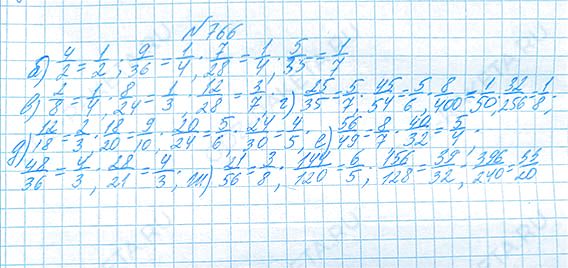 № 766
б) 4/2 = 1/2; 9/36 = 1/4; 7/28 = 1/4; 5/35 = 1/7
в) 2/8 = 1/4; 8/24 = 1/3; 12/28 = 3/7 г) 25/35 = 5/7; 45/54 = 5/6; 8/400 = 1/50; 32/256 = 1/8;
д) 12/18 = 2/3; 18/20 = 9/10; 20/24 = 5/6; 24/30 = 4/5; е) 56/49 = 8/7; 40/32 = 5/4;
48/36 = 4/3; 28/21 = 4/3; ж) 21/56 = 3/8; 144/120 = 6/5; 156/128 = 39/32; 396/240 = 33/20